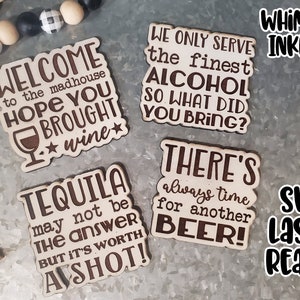 WELCOME
to the madhouse
HOPE YOU
BROUGHT
wine
WE ONLY SERVE
the finest
ALCOHOL
SO WHAT DID
YOU BRING?
TEQUILA
may not be
THE ANSWER
BUT IT'S WORTH
A SHOT!
THERE'S
always time
for another
BEER!